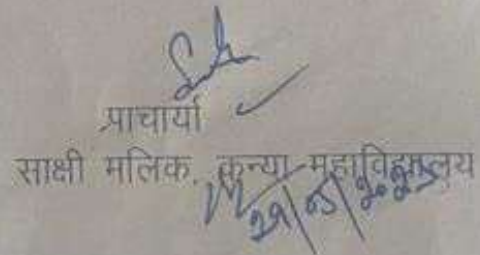 प्राचार्या
साक्षी मलिक, कन्या महाविद्यालय